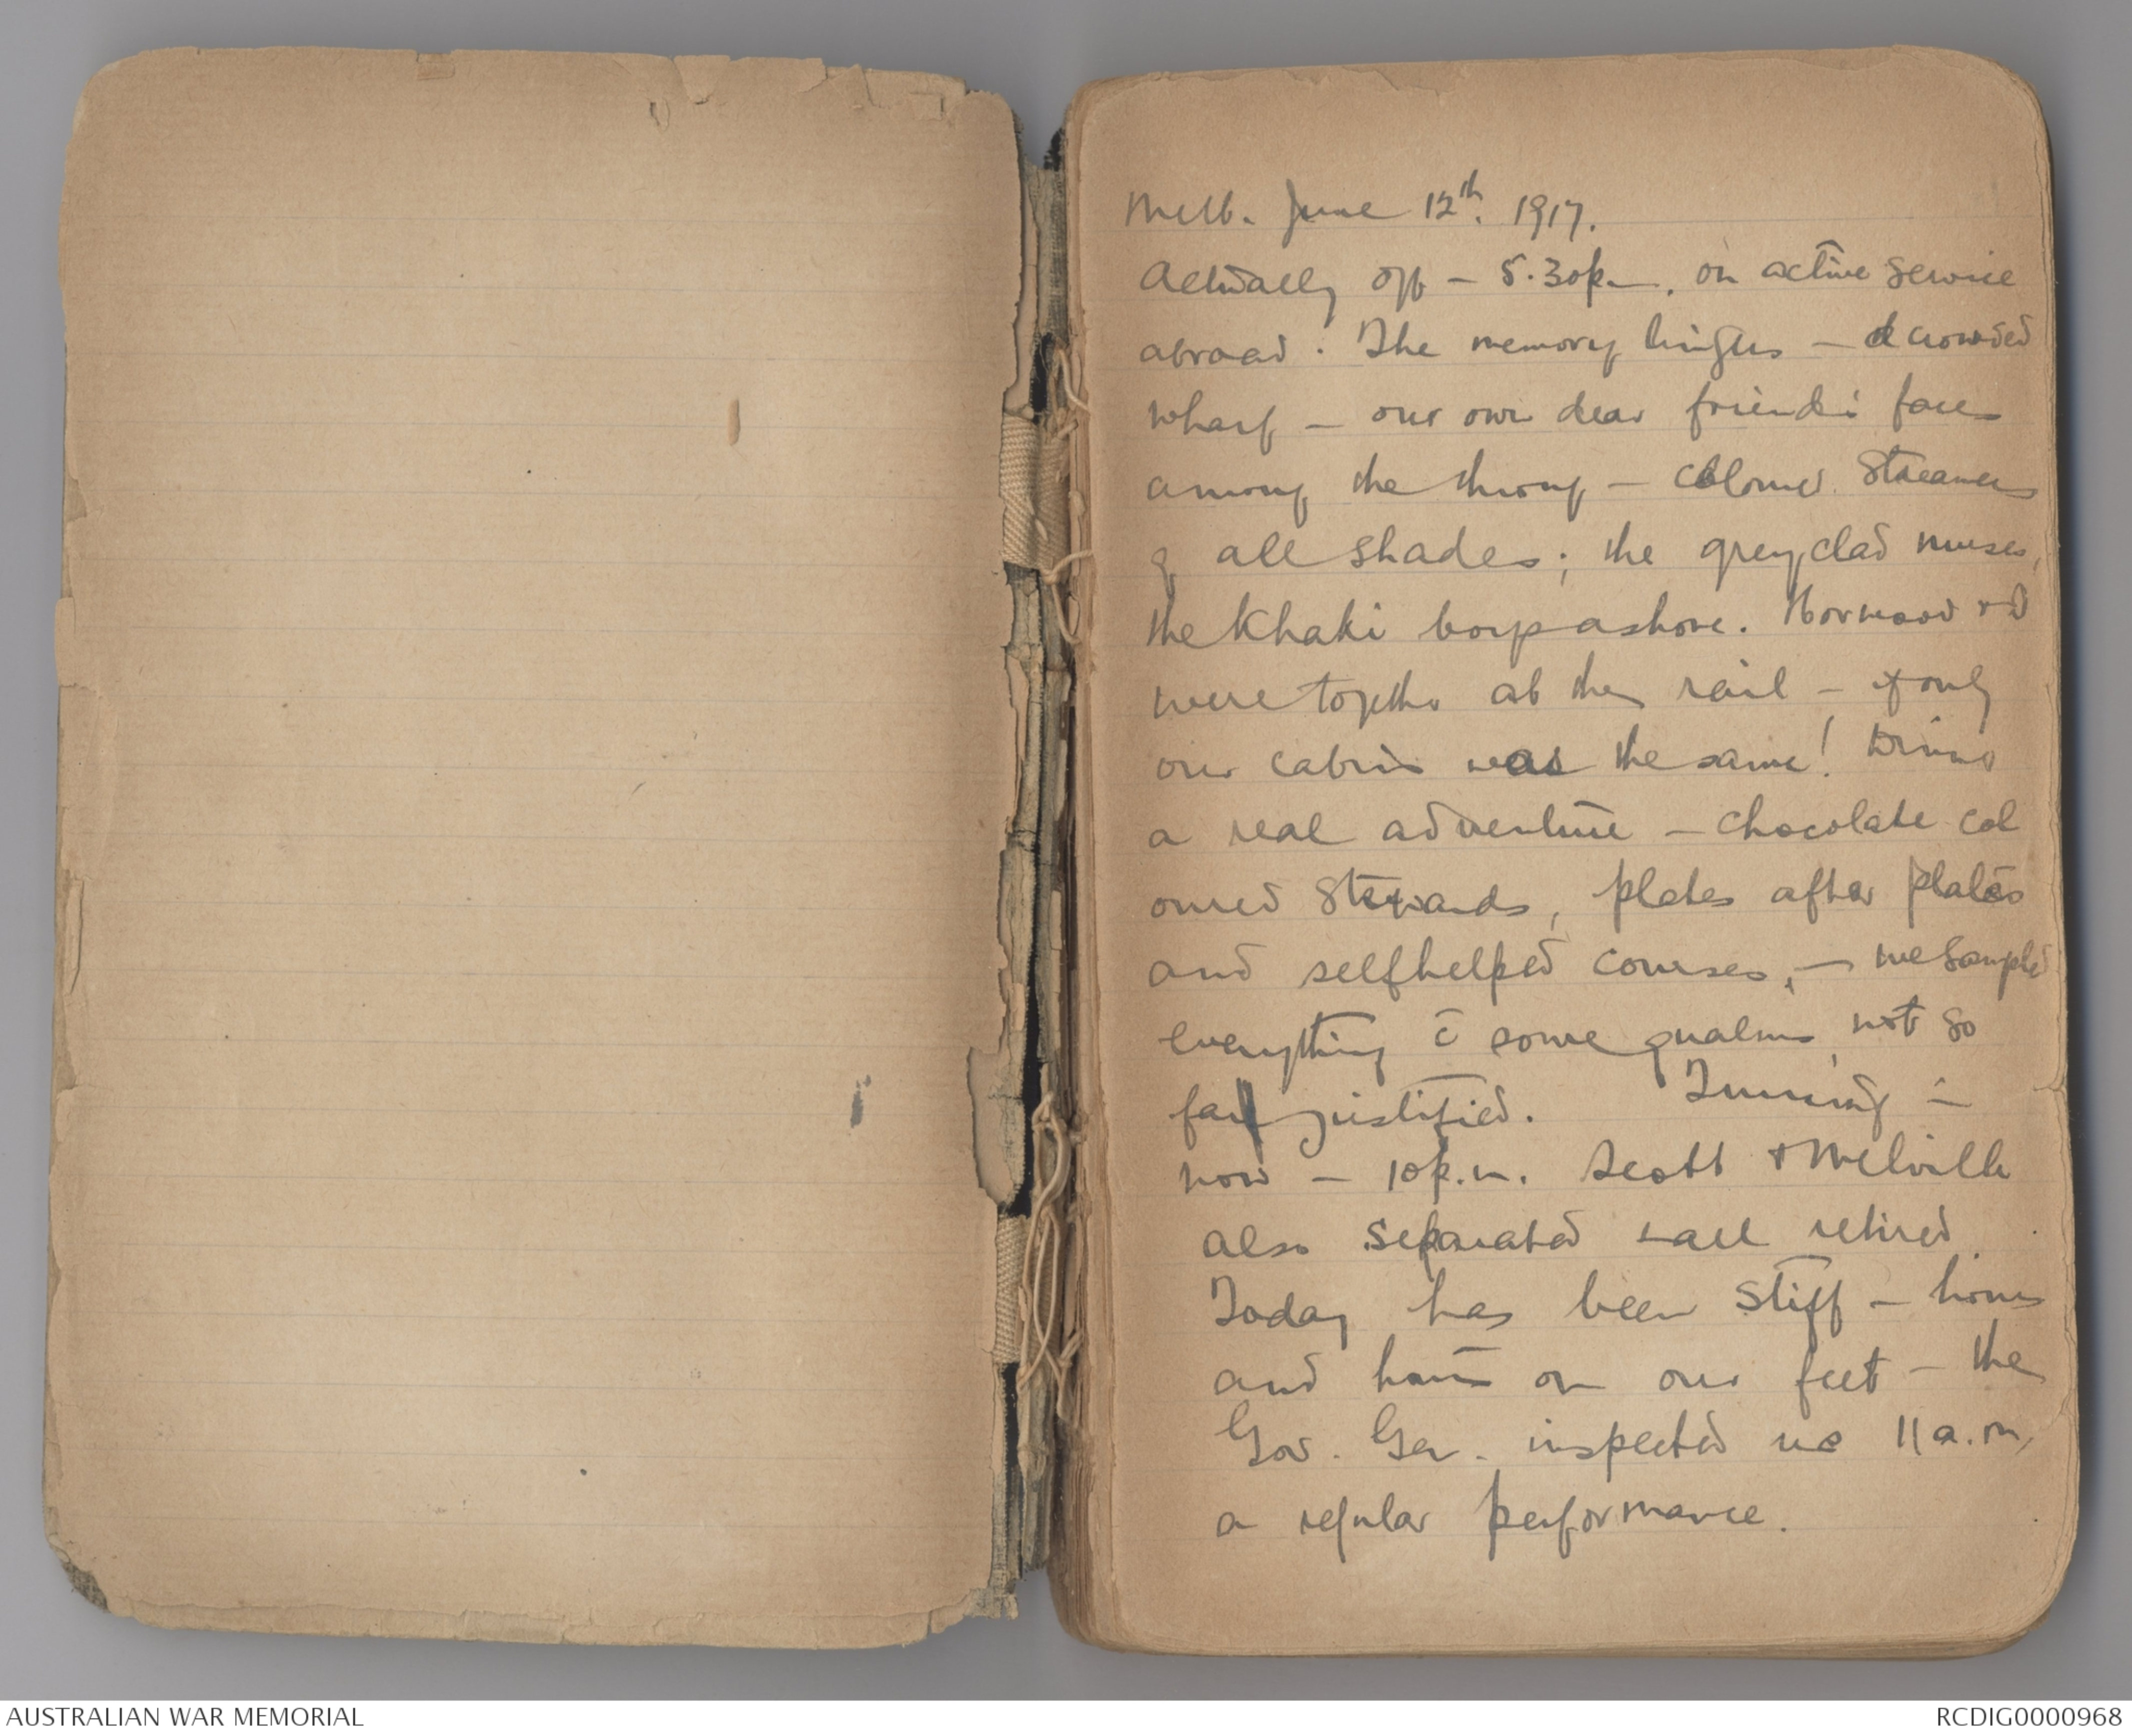 Melb. June 12th. 1917.
Actually off – 5.30pm. on active service
abroad. The memory lingers – crowded
wharf – our own dear friends' faces
among the throng – coloured streamers
of all shades; the grey clad nurses,
the Khaki boys ashore. Norwood + I
were together at the rail – if only
our cabin was the same! Dining
a real adventure – chocolate col
oured stewards, plates after plates
and selfhelped courses, – we sampled
everything c̄ some qualms, not so
far justified. Turning in
now – 10p.m. Scott + Melville
also separated + all retired.
Today has been stiff – hours
and hours on our feet – the
Gov. Gen. inspected us 11a.m,
a regular performance.
AUSTRALIAN WAR MEMORIAL
RCDIG0000968